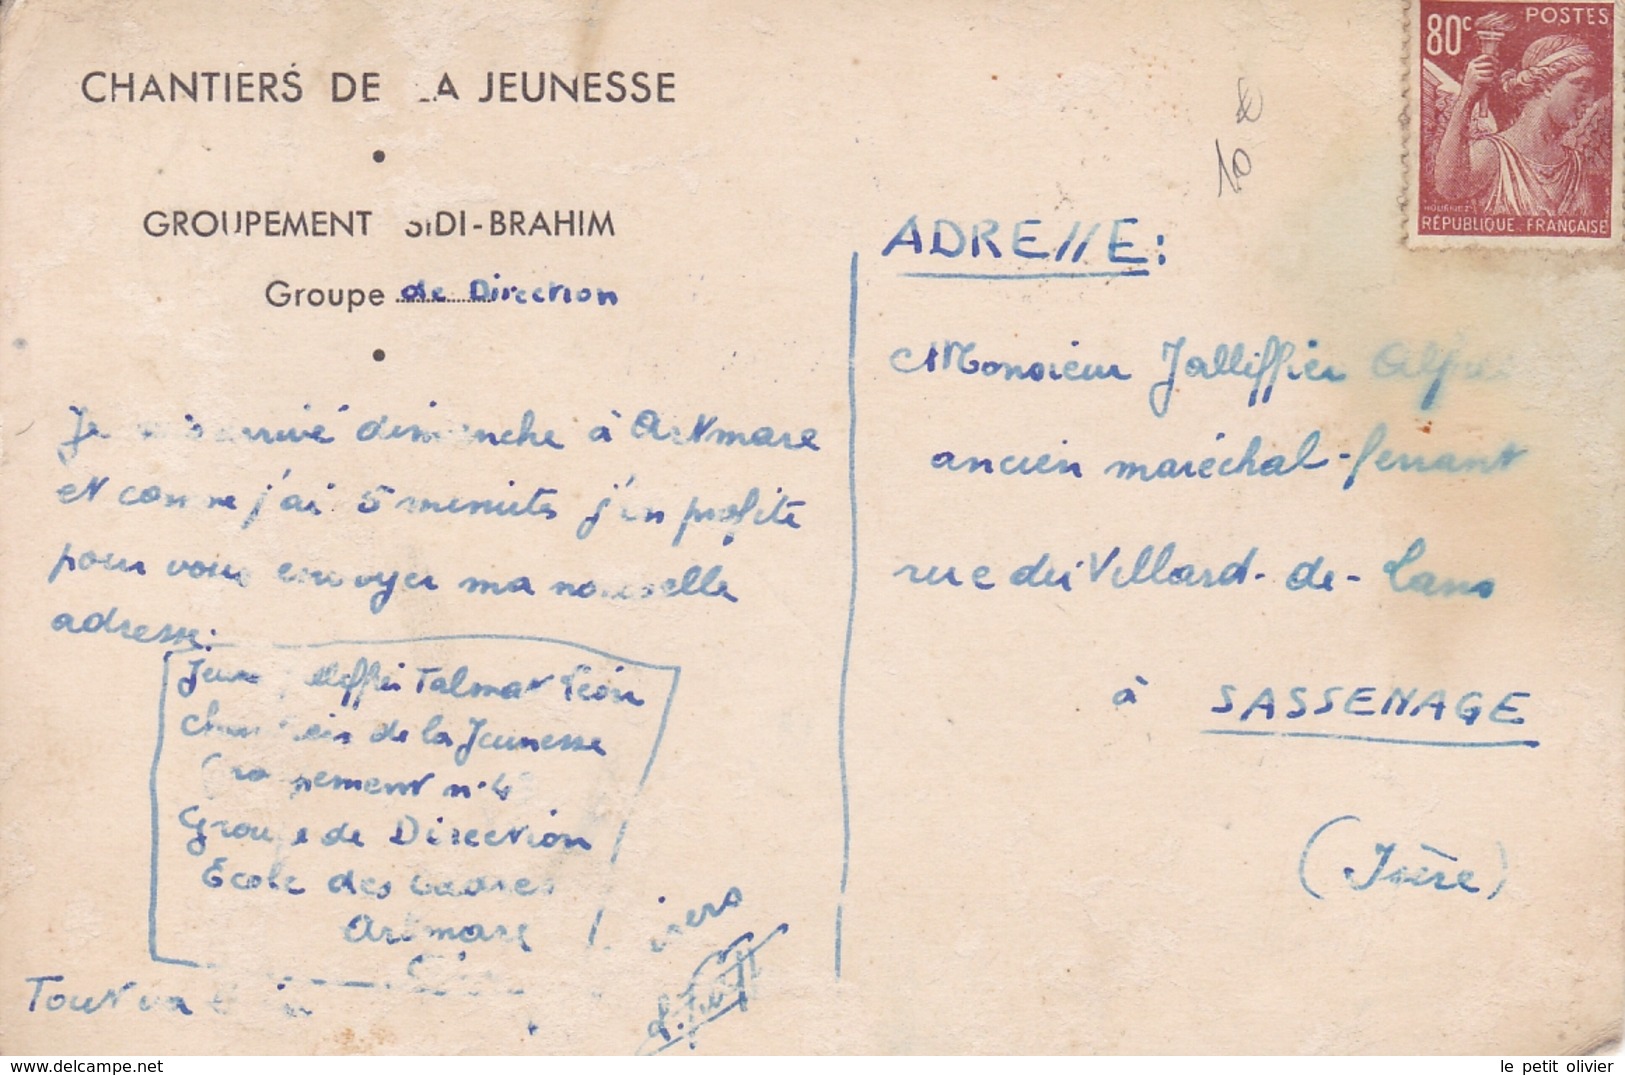 CHANTIERS DE LA JEUNESSE
GROUPEMENT SIDI-BRAHIM
Groupe de Direction
Je suis arrivé dimanche à Artemare
et comme j'ai 5 minutes j'en profite
pour vous envoyer ma nouvelle
adresse:
Jeune Jalliffier Talmat Léon
Chantiers de la Jeunesse
Groupement n° 4
Groupe de Direction
Ecole des Cadres
Artemare
Tout va bien
80c
POSTES
RÉPUBLIQUE FRANÇAISE
10 €
ADRESSE:
Monsieur Jalliffier Alfred
ancien maréchal-ferrant
rue du Villard-de-Lans
à SASSENAGE
(Isère)
le petit olivier